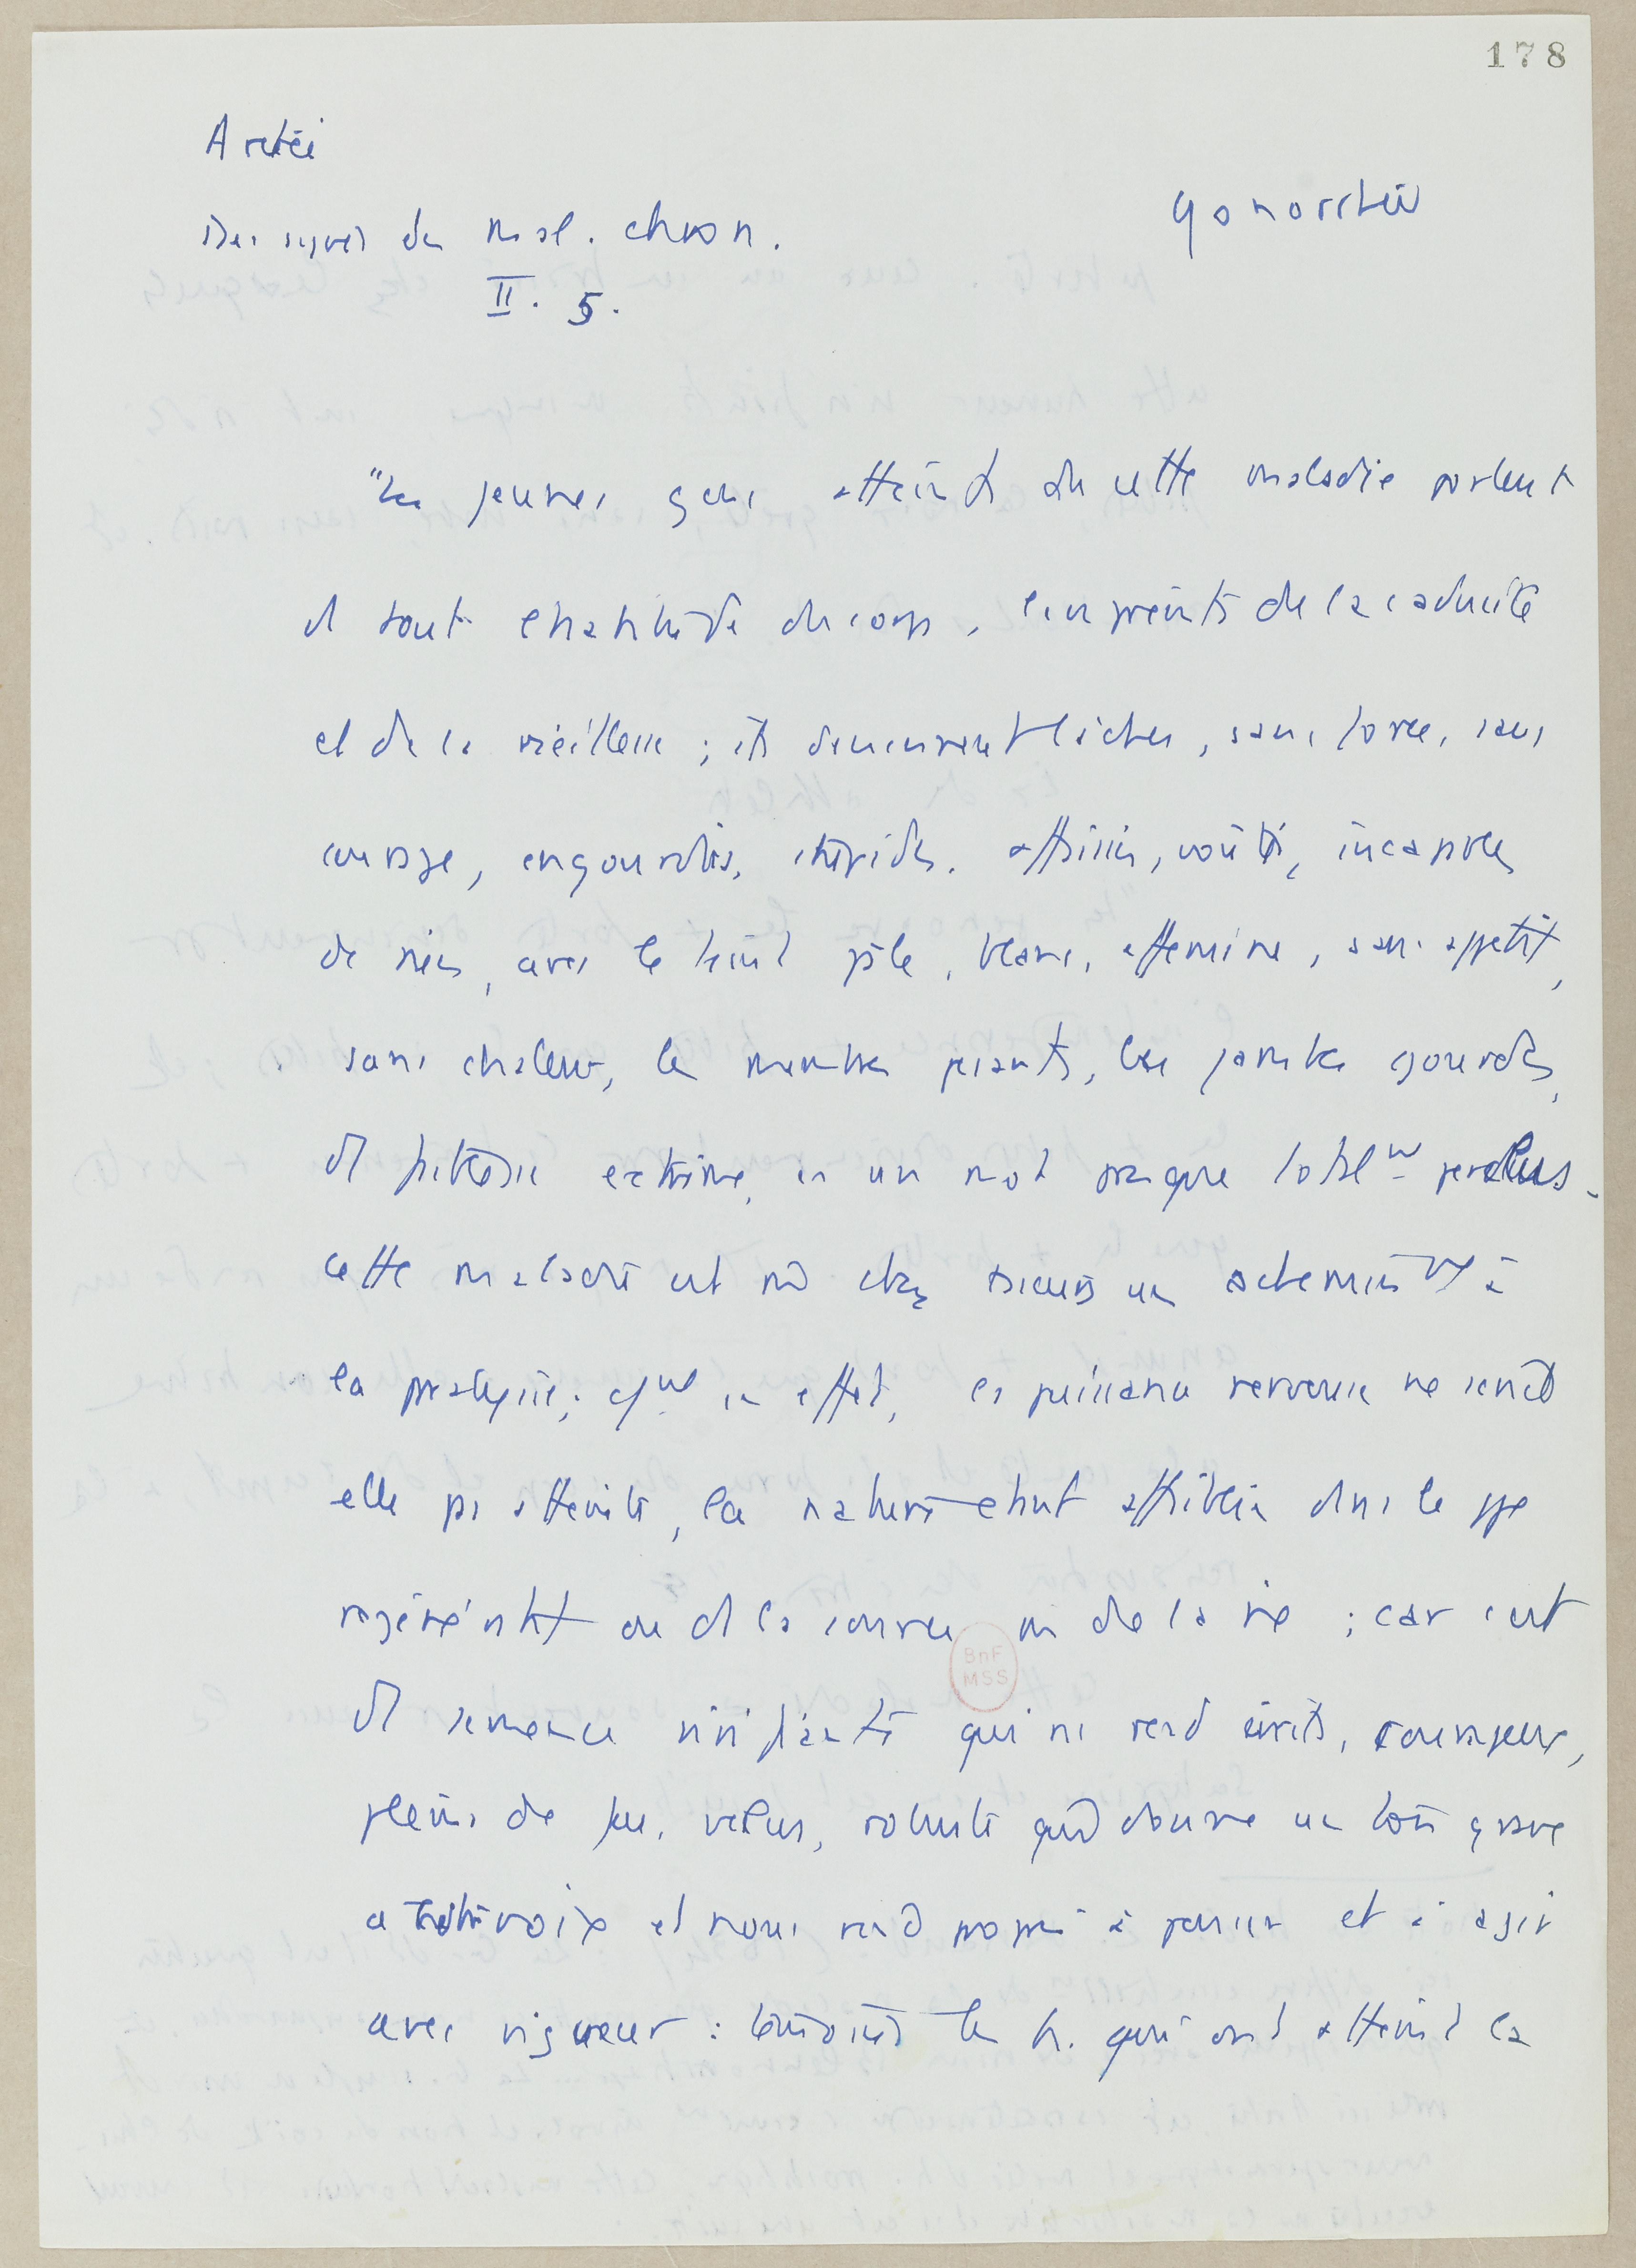 178
Arétée
Des signes des mal. chron.
II. 5.
gonorrhée
"Les jeunes gens atteints de cette maladie portent
ds toute l'habitude du corps, l'empreinte de la caducité
et de la vieillesse ; ils deviennent lâches, sans force, sans
courage, engourdis, stupides, affaissés, voûtés, incapables
de rien, avec le teint pâle, blanc, efféminé, sans appétit,
sans chaleur, les membres pesants, les jambes gourdes,
d'une faiblesse extrême, en un mot presque totalmt perclus.
Cette maladie est mê chez plusieurs un acheminemt à
la paralysie ; cmt en effet, la puissance nerveuse ne serait
elle pas atteinte, la nature étant affaiblie dans le ppe
régénératif ou ds la source mê de la vie ; car c'est
la semence vivifiante qui ns rend virils, courageux,
pleins de feu, velus, robustes qui donne un ton grave
à notre voix et nous rend propres à penser et à agir
avec vigueur : témoins les h. qui ont atteint la
BnF
MSS